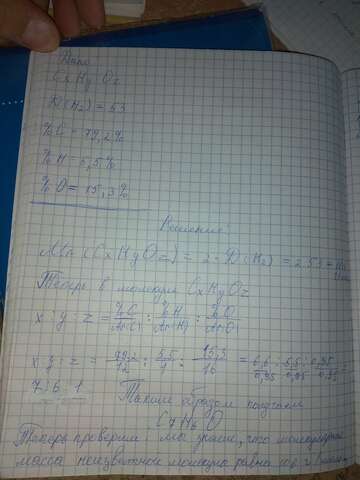 Дано
CxHyOz
D(H2) = 53
%C = 79,2%
%H = 5,5%
%O = 15,3%
Решение:
Mr (CxHyOz) = 2 · D(H2) = 2·53 =
Теперь в молекуле CxHyOz
x : y : z = %C/Ar(C) : %H/Ar(H) : %O/Ar(O)
x : y : z = 79,2/12 : 5,5/1 : 15,3/16 = 6,6/0,95 : 5,5/0,95 : 0,95/0,95 =
7 : 6 : 1 Таким образом получаем
C7H6O
Теперь проверим: мы знаем, что молекулярная
масса неизвестной молекулы равна